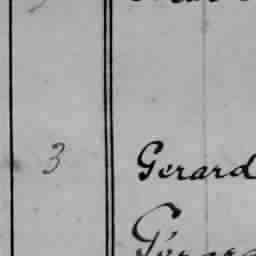 3 Gerard
Gérard